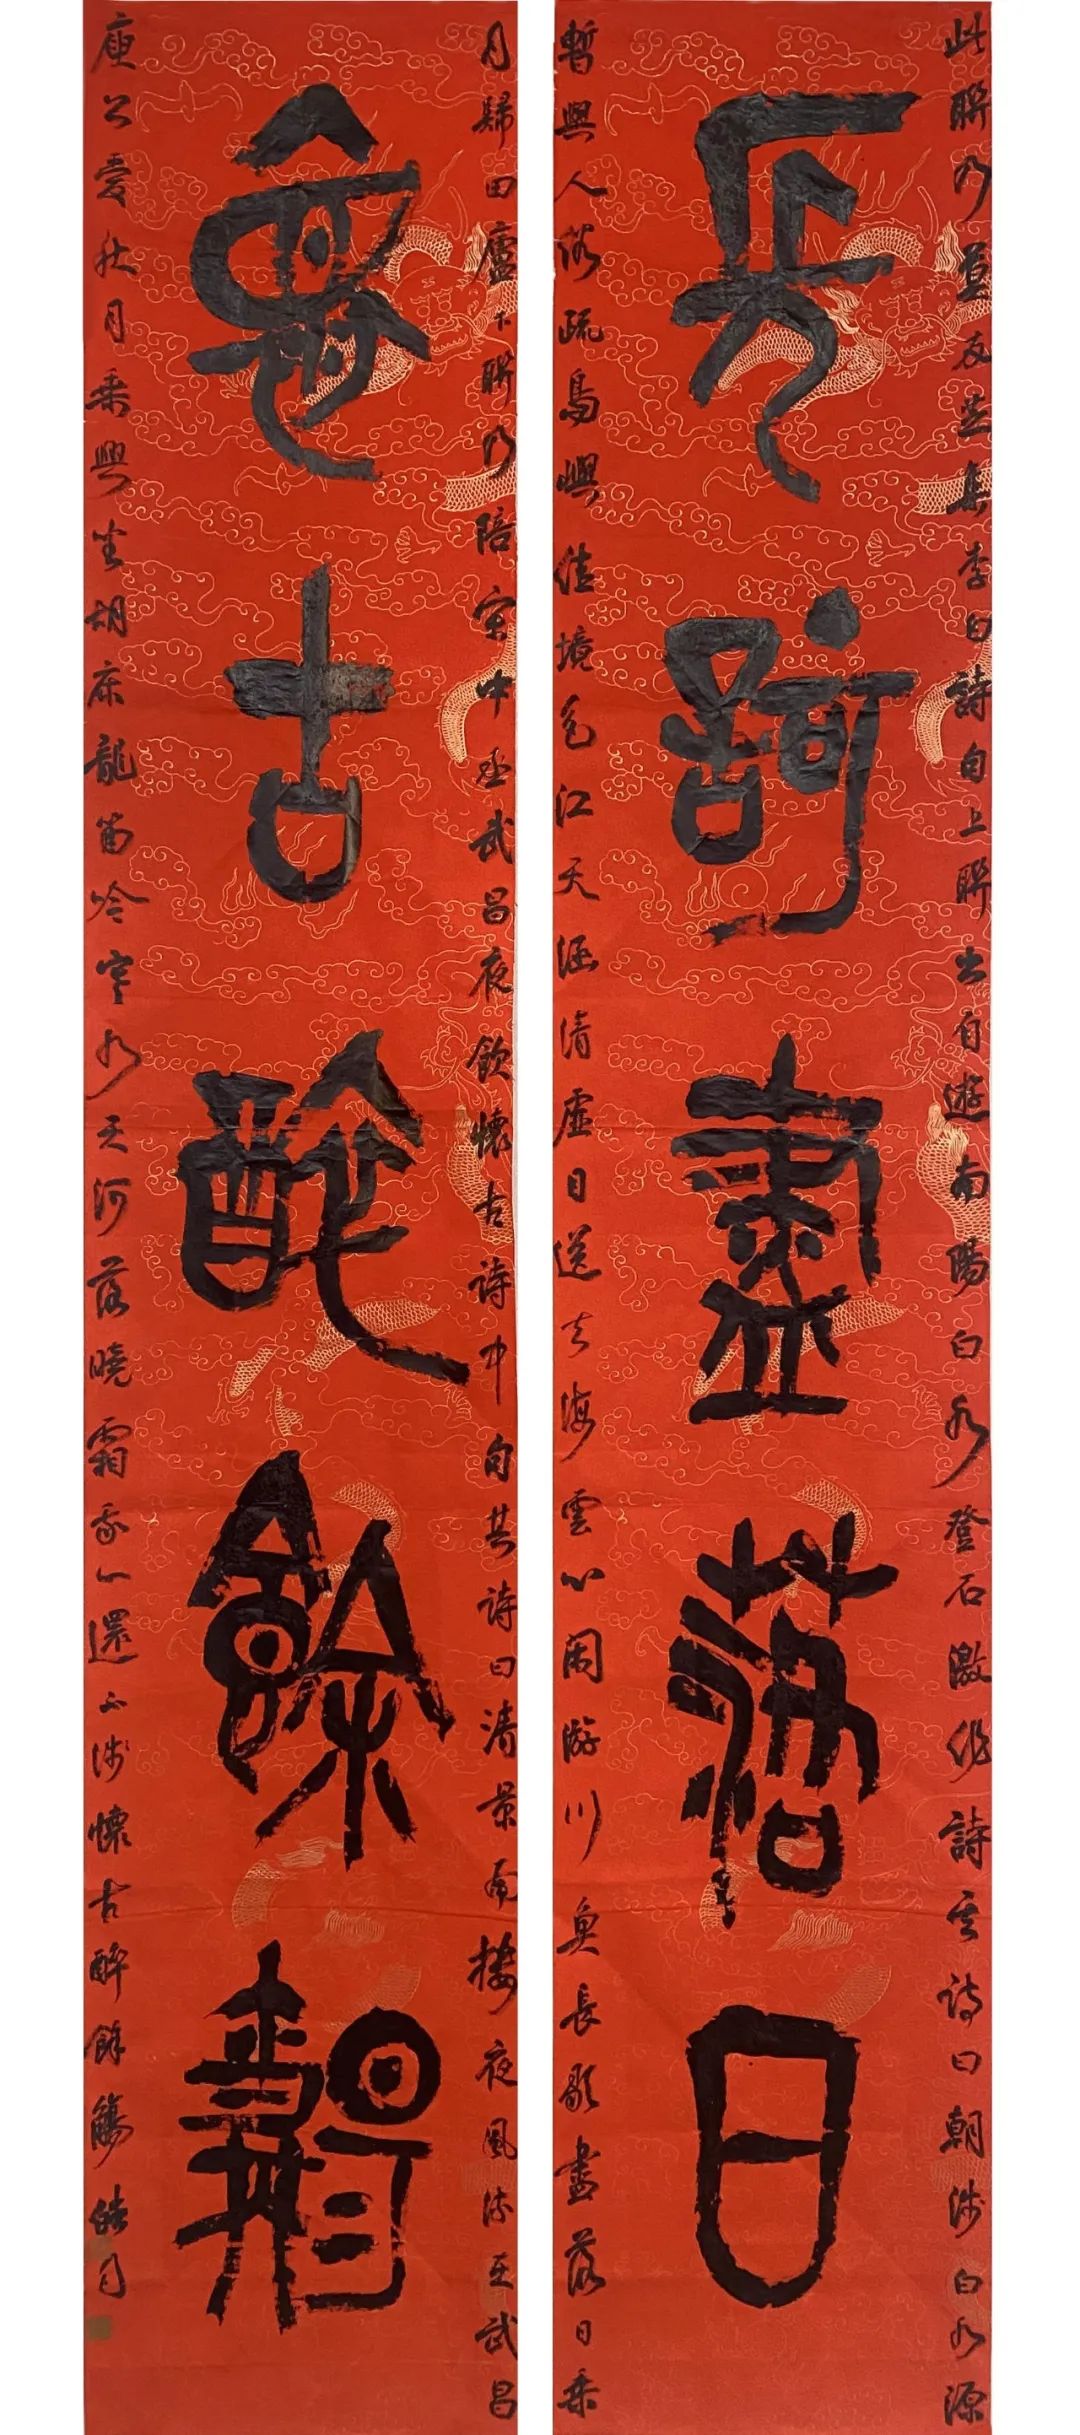 此聯乃友集李白詩句上聯出自遊南陽白水登石激作詩云詩曰朝涉白水源
長謌盡落日
暫與人俗疏島嶼佳境色江天涵清虛目送去海雲心閑游川魚長歌盡落日乘
月歸田廬下聯乃陪宋中丞武昌夜飲懷古詩中句其詩曰清景南樓夜風流在武昌
懷古醉餘觴
庾公愛秋月乘興坐胡床龍笛吟寒水天河落曉霜我心還不淺懷古醉餘觴